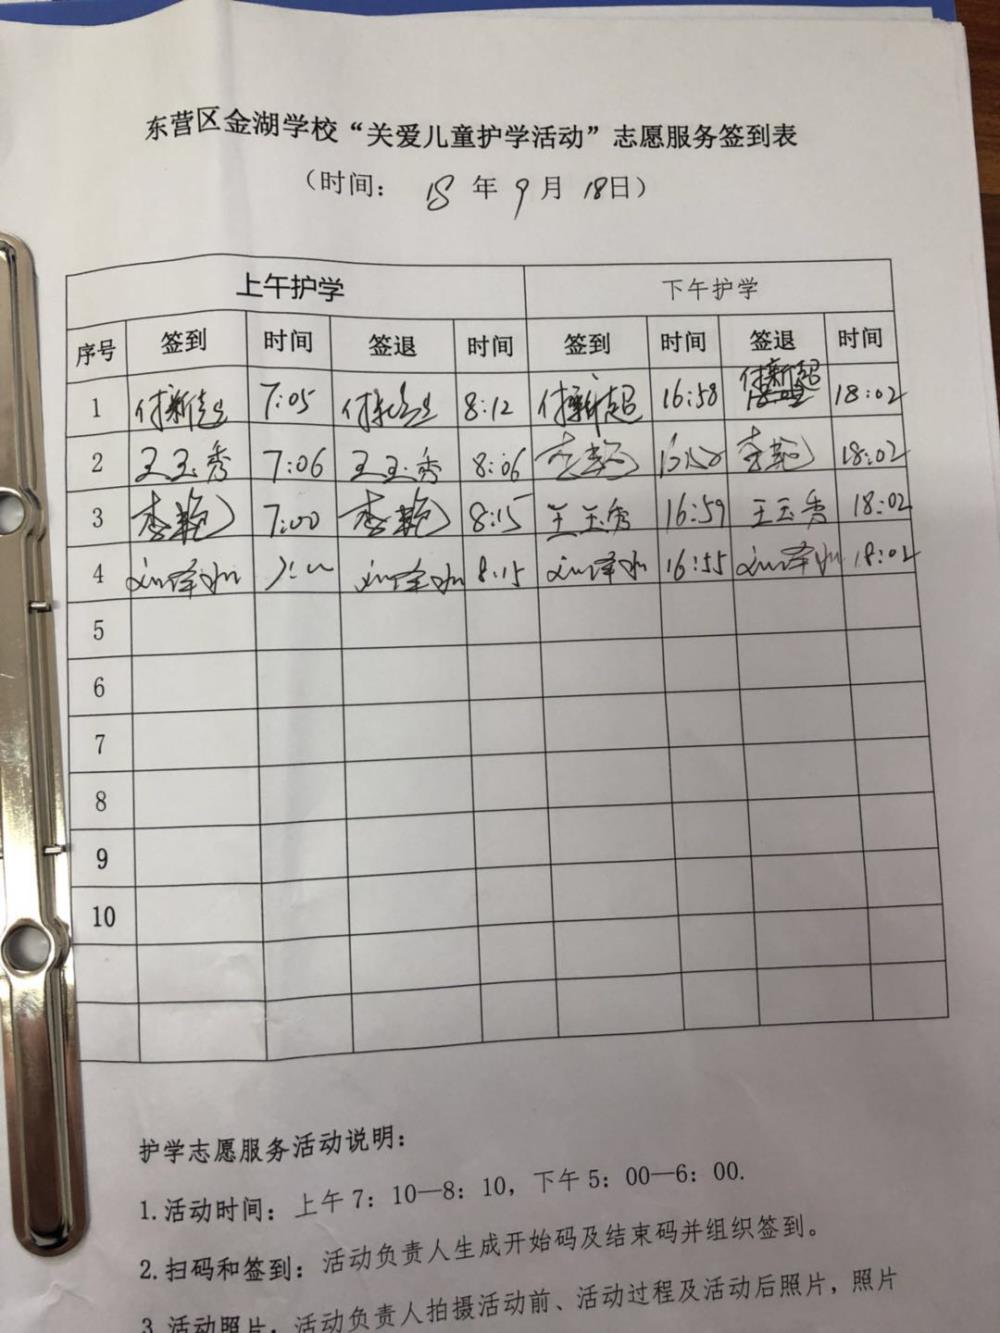 东营区金湖学校“关爱儿童护学活动”志愿服务签到表
（时间： 18 年 9 月 18日）
上午护学 下午护学
序号 签到 时间 签退 时间 签到 时间 签退 时间
1 付新超 7:05 付新超 8:12 付新超 16:58 付新超 18:02
2 王玉秀 7:06 王玉秀 8:06 李艳 李艳 18:02
3 李艳 7:00 李艳 8:15 王玉秀 16:59 王玉秀 18:02
4 8:15 16:55 18:02
5
6
7
8
9
10
护学志愿服务活动说明：
1.活动时间：上午7：10—8：10，下午5：00—6：00.
2.扫码和签到：活动负责人生成开始码及结束码并组织签到。
3.活动照片：活动负责人拍摄活动前、活动过程及活动后照片，照片